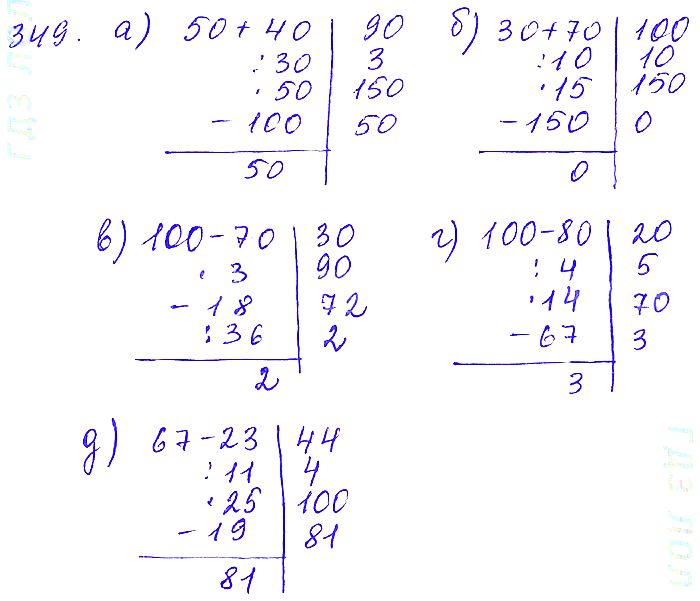 349. а) 50 + 40 | 90
: 30 | 3
· 50 | 150
- 100 | 50
50
б) 30 + 70 | 100
: 10 | 10
· 15 | 150
- 150 | 0
0
в) 100 - 70 | 30
· 3 | 90
- 18 | 72
: 36 | 2
2
г) 100 - 80 | 20
: 4 | 5
· 14 | 70
- 67 | 3
3
д) 67 - 23 | 44
: 11 | 4
· 25 | 100
- 19 | 81
81
гдз лол
гдз лол